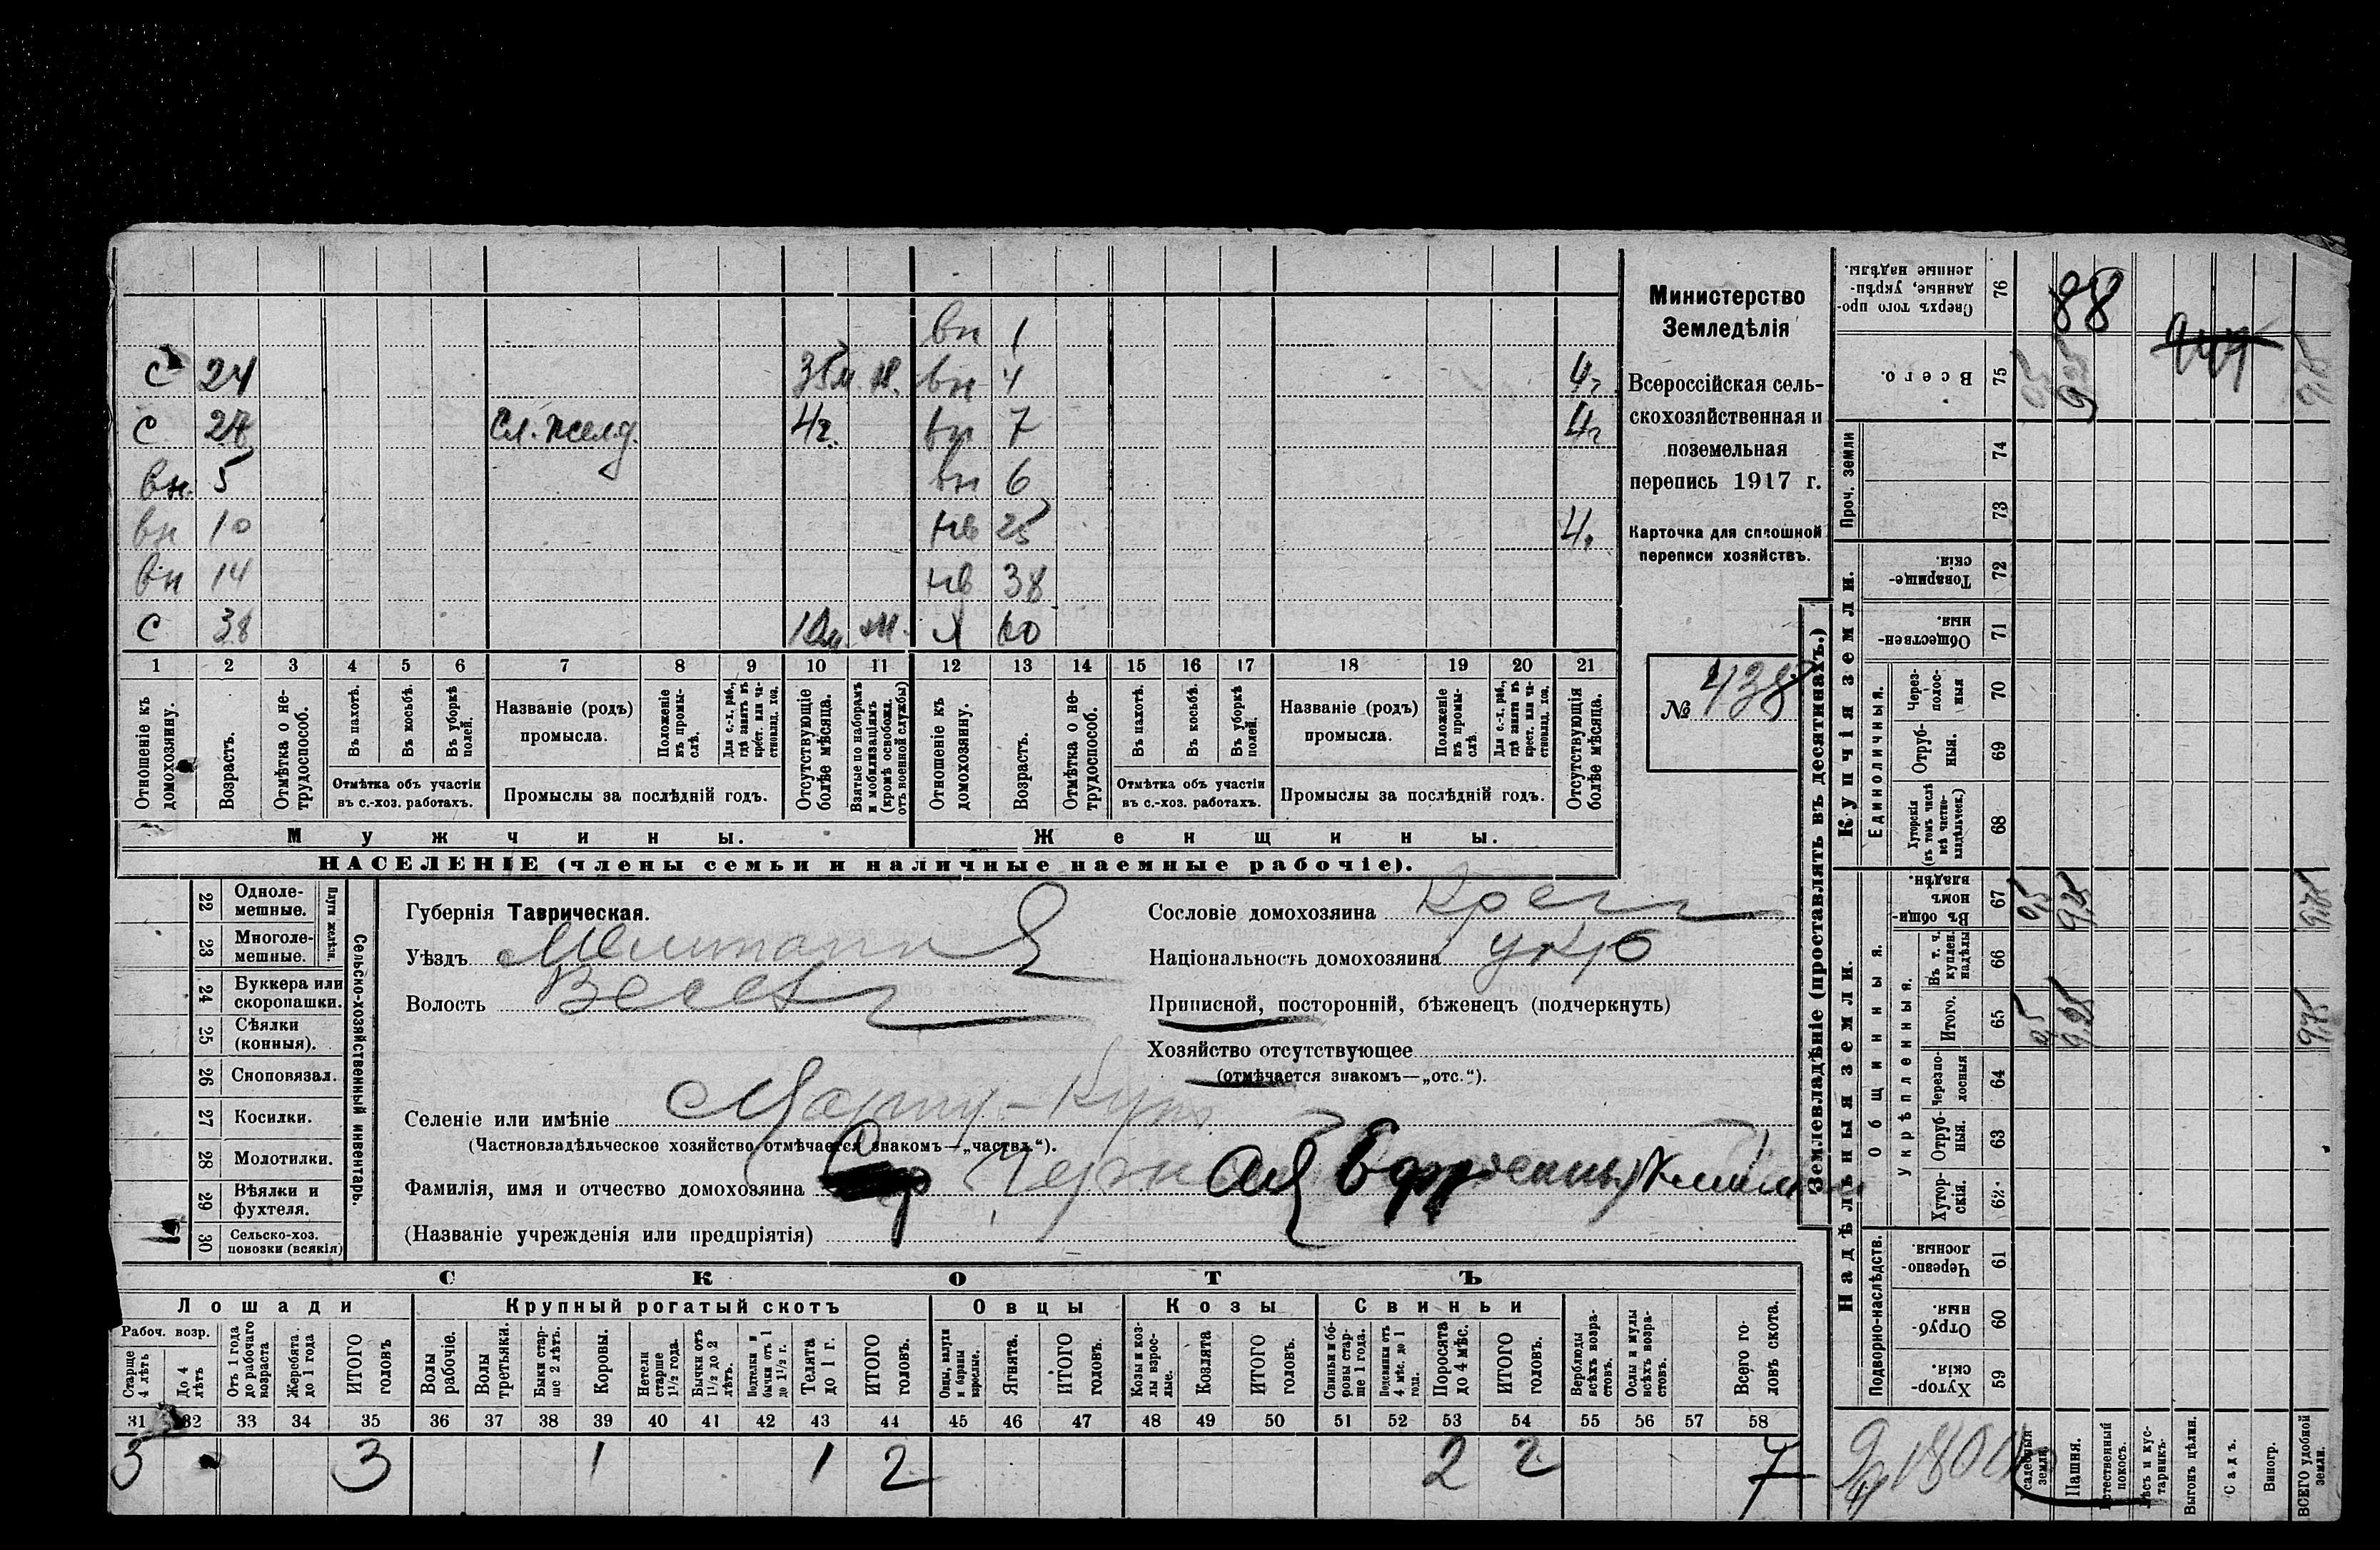 вн 1
с 24 35 м. м. вн 4 4г.
с 27 сл. 4г. вн 7 4г
вн. 5 вн 6
вн 10 нв 25 4г
вн 14 нв 38
с 38 м. я 60
1 2 3 4 5 6 7 8 9 10 11 12 13 14 15 16 17 18 19 20 21
Отношеніе къ домохозяину.
Возрастъ.
Отмѣтка о нетрудоспособ.
Въ пахотѣ.
Въ косьбѣ.
Въ уборкѣ полей.
Отмѣтка объ участіи
въ с.-хоз. работахъ.
Названіе (родъ)
промысла.
Положеніе въ промыслѣ.
Для с.-х. раб., гдѣ занятъ въ крест. или частновлад. хоз.
Промыслы за послѣдній годъ.
Отсутствующіе болѣе мѣсяца.
Взятые по наборамъ и мобилизаціямъ (кромѣ освобожд. отъ военной службы)
Отношеніе къ домохозяину.
Возрастъ.
Отмѣтка о нетрудоспособ.
Въ пахотѣ.
Въ косьбѣ.
Въ уборкѣ полей.
Отмѣтка объ участіи
въ с.-хоз. работахъ.
Названіе (родъ)
промысла.
Положеніе въ промыслѣ.
Для с.-х. раб., гдѣ занята въ крест. или частновлад. хоз.
Промыслы за послѣдній годъ.
Отсутствующія болѣе мѣсяца.
Мужчины. Женщины.
НАСЕЛЕНІЕ (члены семьи и наличные наемные рабочіе).
Министерство
Земледѣлія
Всероссійская сель-
скохозяйственная и
поземельная
перепись 1917 г.
Карточка для сплошной
переписи хозяйствъ.
№ 438
22 Одноле-
мешные.
23 Многоле-
мешные.
Плуги желѣзн.
24 Буккера или
скоропашки.
25 Сѣялки
(конныя).
26 Сноповязал.
27 Косилки.
28 Молотилки.
29 Вѣялки и
фухтеля.
30 Сельско-хоз.
повозки (всякія)
Сельско-хозяйственный инвентарь.
Губернія Таврическая.
Уѣздъ
Волость
Селеніе или имѣніе
(Частновладѣльческое хозяйство отмѣчается знакомъ—„частвл.“).
Фамилія, имя и отчество домохозяина
(Названіе учрежденія или предпріятія)
Сословіе домохозяина
Національность домохозяина укр
Приписной, посторонній, бѣженецъ (подчеркнуть)
Хозяйство отсутствующее
(отмѣчается знакомъ—„отс.“).
СКОТЪ
Лошади Крупный рогатый скотъ Овцы Козы Свиньи
Рабоч. возр.
Старше 4 лѣтъ
До 4 лѣтъ
Отъ 1 года до рабочаго возраста
Жеребята до 1 года
ИТОГО головъ
Волы рабочіе.
Волы третьяки.
Быки старше 2 лѣтъ.
Коровы.
Нетели старше 1 1/2 года.
Бычки отъ 1 1/2 до 2 лѣтъ.
Подтелки и бычки отъ 1 до 1 1/2 г.
Телята до 1 г.
ИТОГО головъ.
Овцы, валухи и бараны взрослые.
Ягнята.
ИТОГО головъ.
Козы и козлы взрослые.
Козлята
ИТОГО головъ.
Свиньи и боровы старше 1 года.
Подсвинки отъ 4 мѣс. до 1 года.
Поросята до 4 мѣс.
ИТОГО головъ.
Верблюды всѣхъ возрастовъ.
Ослы и мулы всѣхъ возрастовъ.
Всего головъ скота.
31 32 33 34 35 36 37 38 39 40 41 42 43 44 45 46 47 48 49 50 51 52 53 54 55 56 57 58
3 3 1 1 2 2 2 7
Землевладѣніе (проставлять въ десятинахъ.)
76 Сверхъ того проданные, укрѣпленные надѣлы. 88
75 Всего.
Проч. земли
74
73
Купчія земли.
72 Товарищескія.
71 Общественныя.
Единоличныя.
70 Через-полос-ныя
69 Отруб-ныя.
68 Хуторскія (въ томъ числѣ всѣ частновладѣльческ.)
Надѣльныя земли.
Общинныя.
67 Въ общинномъ владѣн.
Укрѣпленныя.
66 Въ т. ч. куплен. надѣлы
65 Итого.
64 Черезпо-лосныя
63 Отруб-ныя.
62 Хутор-скія.
Подворно-наслѣдств.
61 Черезпо-лосныя.
60 Отруб-ныя.
59 Хутор-скія.
Усадебныя земли.
Пашня.
Естественный покосъ.
Лѣсъ и кустарникъ.
Выгонъ цѣлин.
Садъ.
Виногр.
ВСЕГО удобной земли.